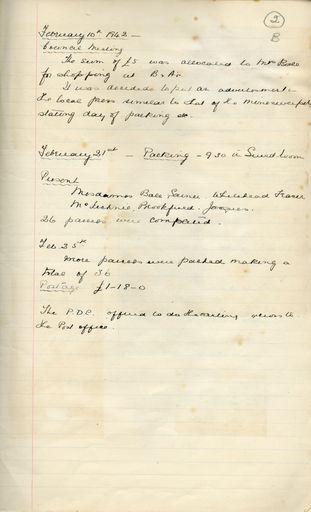 2
B
February 10th 1942 —
Council Meeting
The sum of £5 was allocated to Mrs Bale
for shopping at B. Ar.
It was decided to put an advertisement
the local press similar to that of the
stating day of packing etc.
February 21st — Packing — 9.30 in Sewed room
Present
Mesdames Bale Whitehead Fraser
McLechnie, Brookfield, Jaques.
26 parcels were completed.
Feb 25th
More parcels were packed making a
total of 36
Postage £1-18-0
The P.D.C. offered to do the carting across to
the Post office.